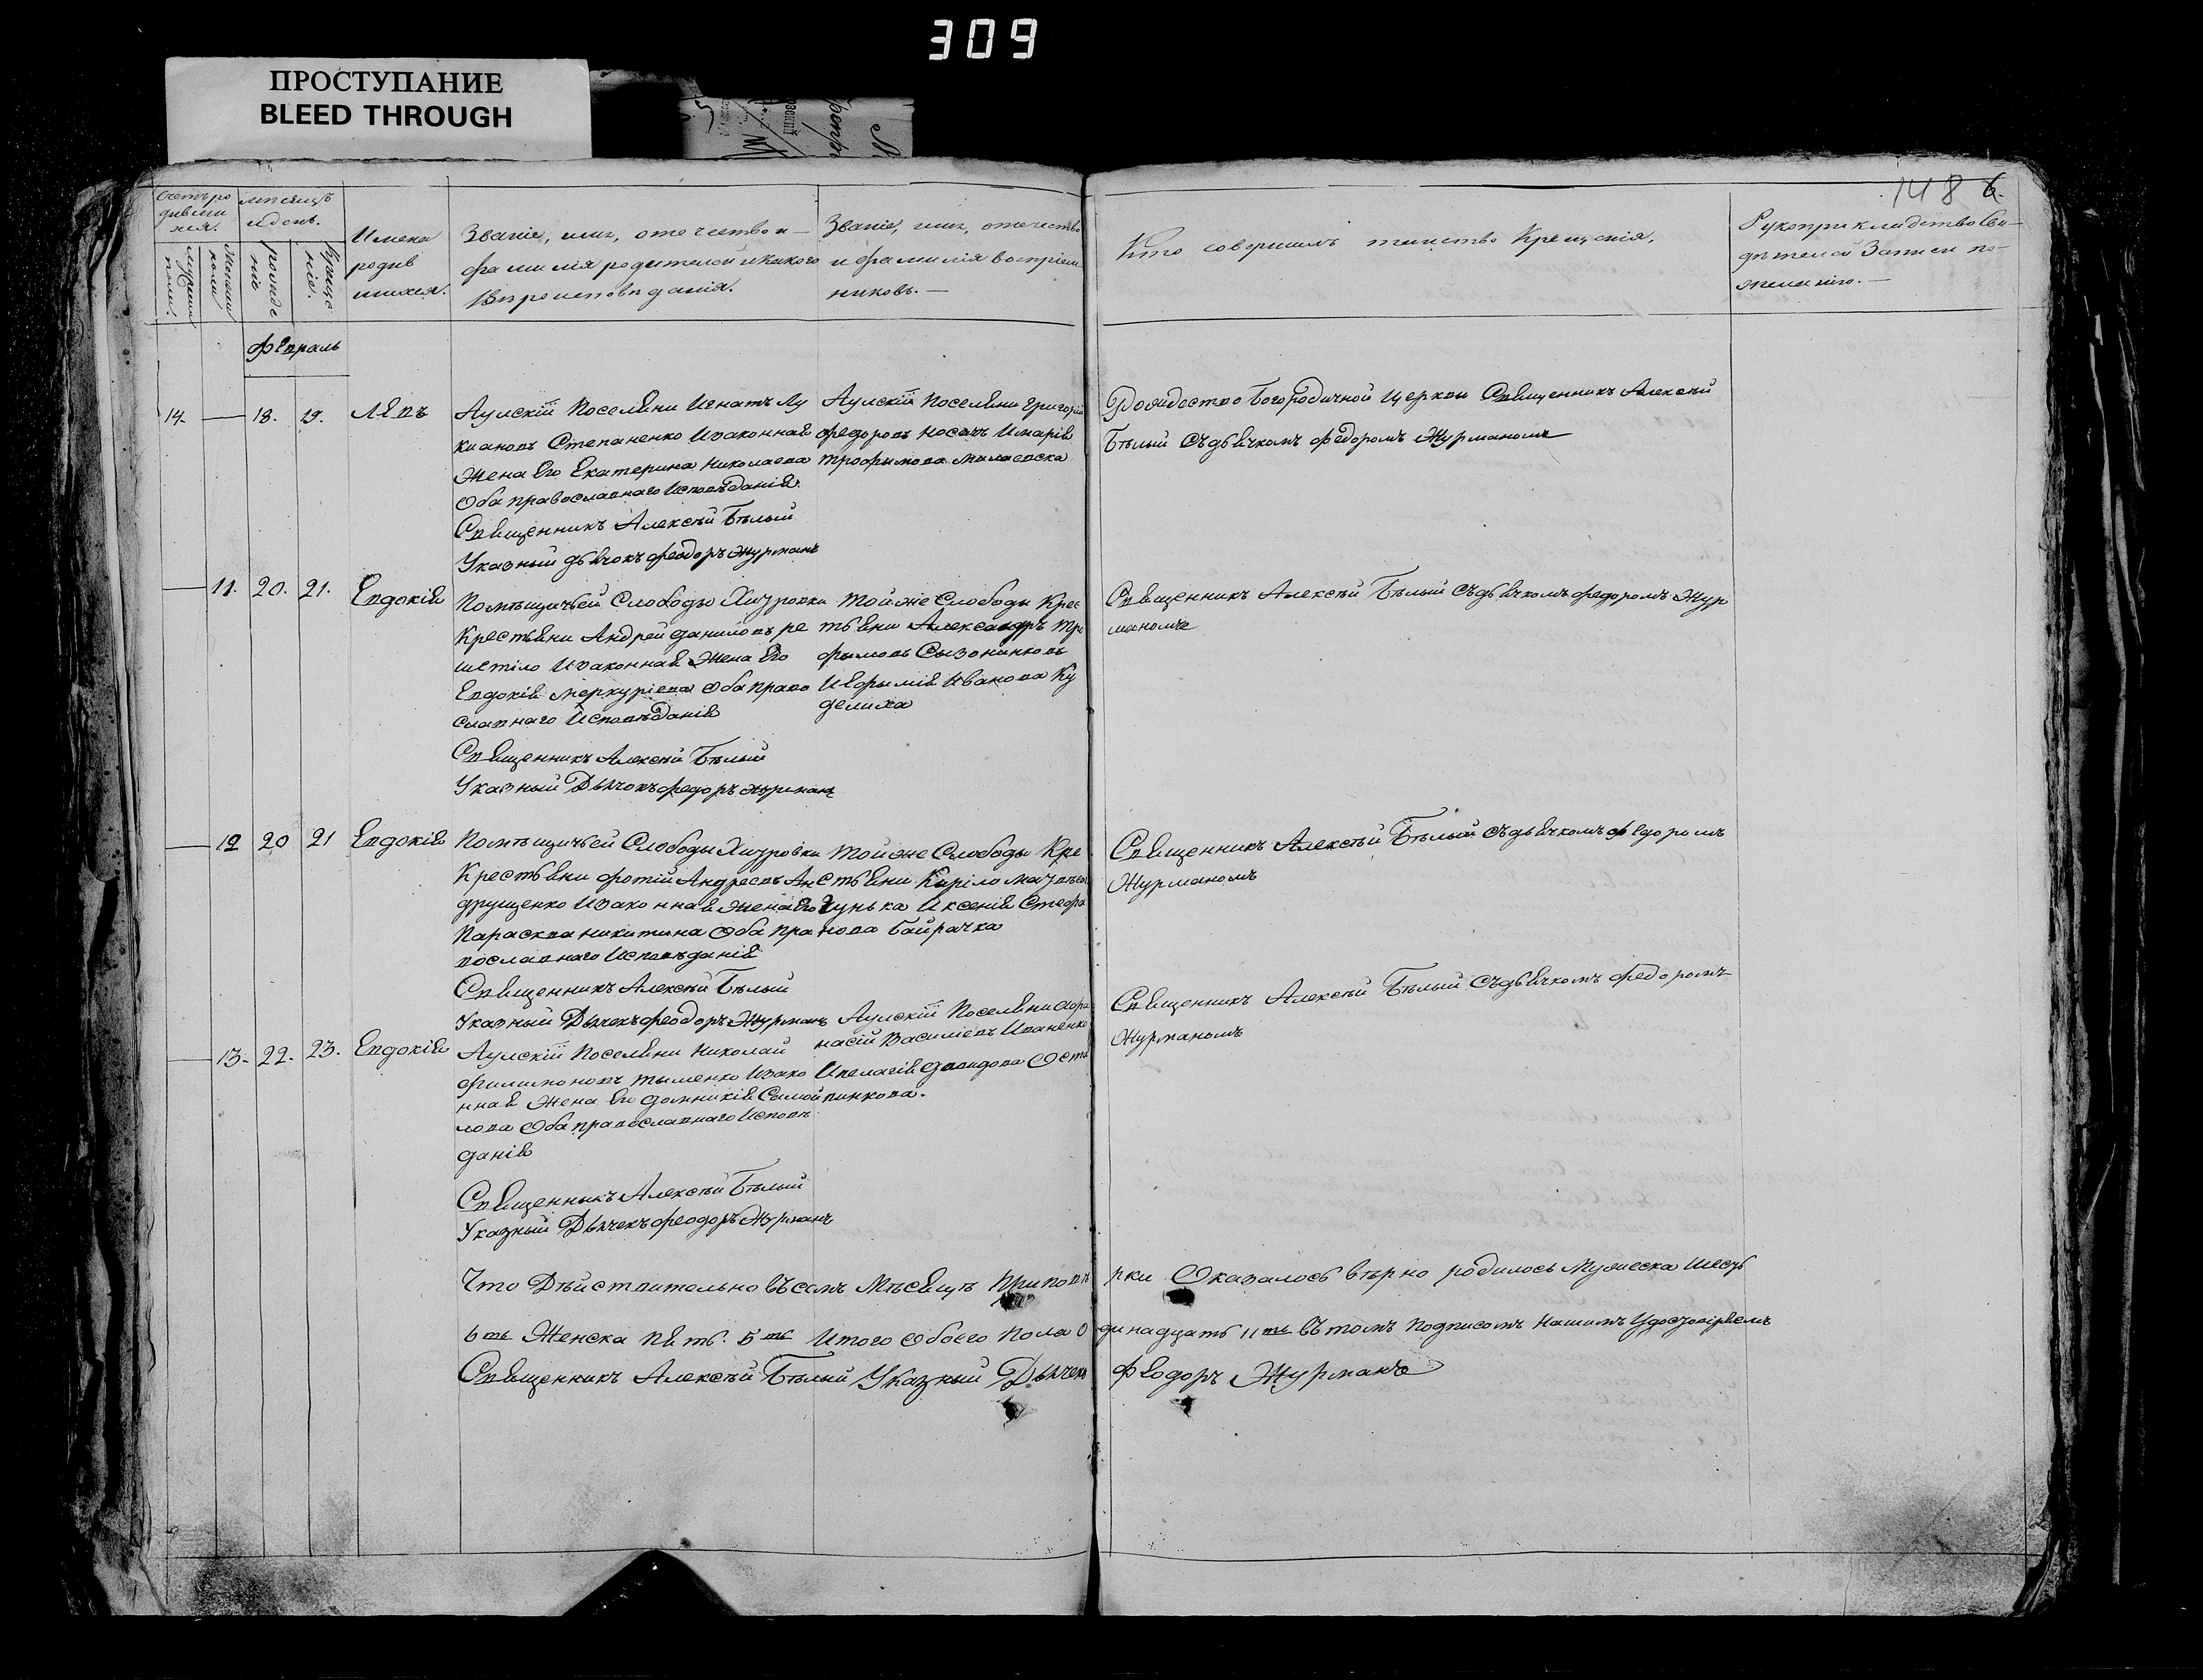 309
ПРОСТУПАНИЕ
BLEED THROUGH
148
6.
Счетъ ро
дивши
хся.
мѣсяцъ
и день.
Мужеска
пола.
Женска
пола
рожде
нія
Креще
нія.
Имена
родив
шихся.
Званіе, имя, отечество и
фамилія родителей и какого
Вѣроисповѣданія.
Званіе, имя, отечество
и фамилія воспріем
никовъ. —
Кто совершалъ таинство Крещенія,
Рукоприкладство Сви-
дѣтелей Записи по-
желанію. —
Февраль
14. — 18. 19. Левъ
Аулскій Поселяни Игнатъ Лу
киановъ Степаненко Изаконная
Жена Его Екатерина Николаева
Оба православнаго Исповѣданія
Священникъ Алексѣй Бѣлый
Указный дьячокъ Феодоръ Журманъ
Аулскій Поселяни Григорій
Федоровъ Носачъ Имарія
Трофымова Милаевска
Рождество Богородичной Церкви Священникъ Алексѣй
Бѣлый Съдьячкомъ Федоромъ Журманомъ
— 11. 20. 21. Евдокія
Помѣщичьей Слободы Хитровки
Крестьяни Андрей Даниловъ ре
шетіло Изаконная Жена Его
Евдокія Меркуріева Оба право
славнаго Исповѣданія
Священникъ Алексѣй Бѣлый
Указный Дьячокъ Федоръ Журманъ
Той же Слободы Крес
тьяни Александръ Тро
фымовъ Сызонинковъ
Иефымія Иванова Ку
делиха
Священникъ Алексѣй Бѣлый Съдьячкомъ Федоромъ Жур
маномъ
— 12 20 21 Евдокія
Помѣщичьей Слободы Хитровки
Крестьяни Фотій Андреевъ Ан
друщенко Изаконная Жена Его
Парасква Никитина Оба пра
вославнаго Исповѣданія
Священникъ Алексѣй Бѣлый
Указный Дьячекъ Феодоръ Журманъ
Той же Слободы Кре
стьяни Киріло
Гунька Иксенія Стефа
нова Байрачка
Священникъ Алексѣй Бѣлый Съдьячкомъ Федоромъ
Журманомъ
— 13. 22. 23. Евдокія
Аулскій Поселяни Николай
Филимоновъ Тыменко Изако
нная Жена Его Домникія Самой
лова Оба православнаго Исповѣ
данія
Священникъ Алексѣй Бѣлый
Указный Дьячекъ Феодоръ Журманъ
Аулскій Поселяни Афа
насій Василіевъ Иваненко
Ипелагія Давидова Оста
пинкова.
Священникъ Алексѣй Бѣлый Съдьячкомъ Федоромъ
Журманомъ
Что Дѣйствительно Въсемъ Мѣсяцѣ Приповѣ рки Оказалось вѣрно родилось Мужеска Шесть
6ть Женска Пять 5ть Итого Обоего Пола О динадцать 11ть Въ томъ Подписомъ Нашимъ Удостовіряемъ
Священникъ Алексѣй Бѣлый Указный Дьячекъ Феодоръ Журманъ